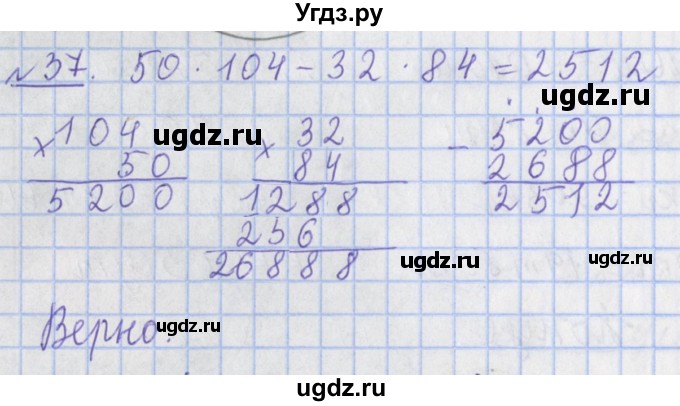 Угдз.ру
№37. 50 · 104 - 32 · 84 = 2512
× 104 × 32 - 5200
50 84 2688
5200 1288 2512
256
26888
Верно.
ugdz.ru
ugdz.ru
ugdz.ru
ugdz.ru
ugdz.ru
ugdz.ru
ugdz.ru